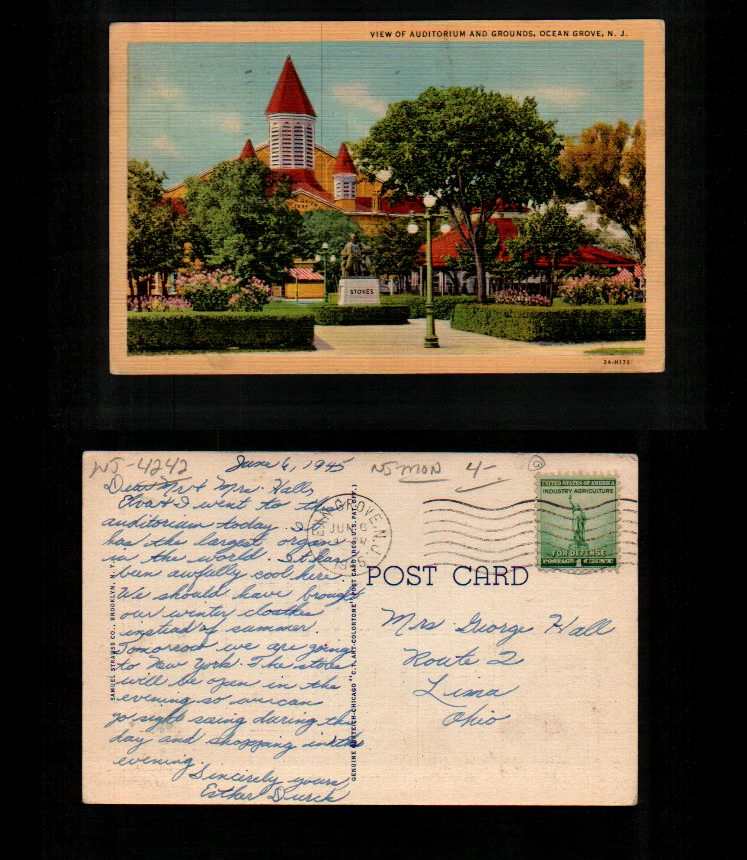 VIEW OF AUDITORIUM AND GROUNDS, OCEAN GROVE, N. J.
STOKES
3A-H736
WJ-4242
June 6, 1945
NJ MON
4-
Dear Mr & Mrs. Hall,
Elva & I went to the
auditorium today. It
has the largest organ
in the world. It has
been awfully cool here.
We should have brought
our winter clothes
instead of summer.
Tomorrow we are going
to New York. The stores
will be open in the
evening so we can
go sight seeing during the
day and shopping in the
evening.
Sincerely yours
Esther
OCEAN GROVE, N.J.
JUN 6
UNITED STATES OF AMERICA
INDUSTRY AGRICULTURE
FOR DEFENSE
POSTAGE 1 CENT
POST CARD
Mrs. George Hall
Route 2
Lima
Ohio
SAMUEL STRAUSS CO., BROOKLYN, N. Y.
GENUINE CURTEICH-CHICAGO "C. T. ART-COLORTONE" POST CARD (REG. U. S. PAT. OFF.)